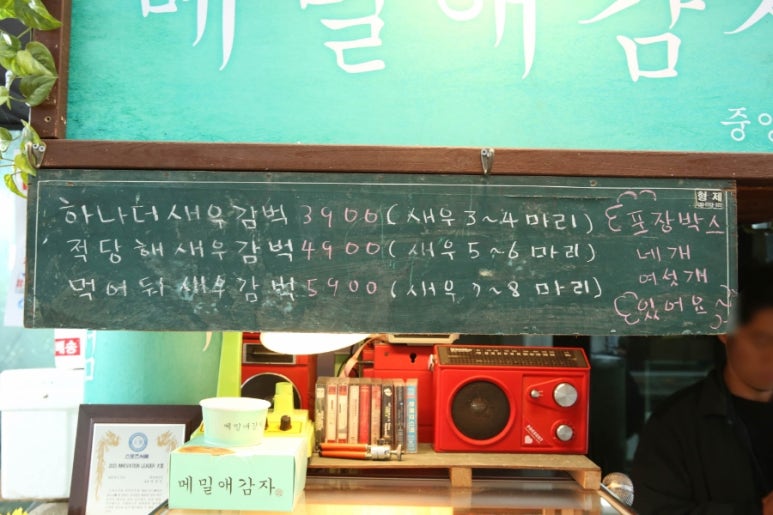 메밀애감자
중앙
하나더새우감벅 3900 (새우3~4마리)
적당해새우감벅 4900 (새우5~6마리)
먹어둬새우감벅 5900 (새우7~8마리)
포장박스
네개
여섯개
있어요~
형제
배송
메밀애감자
메밀애감자